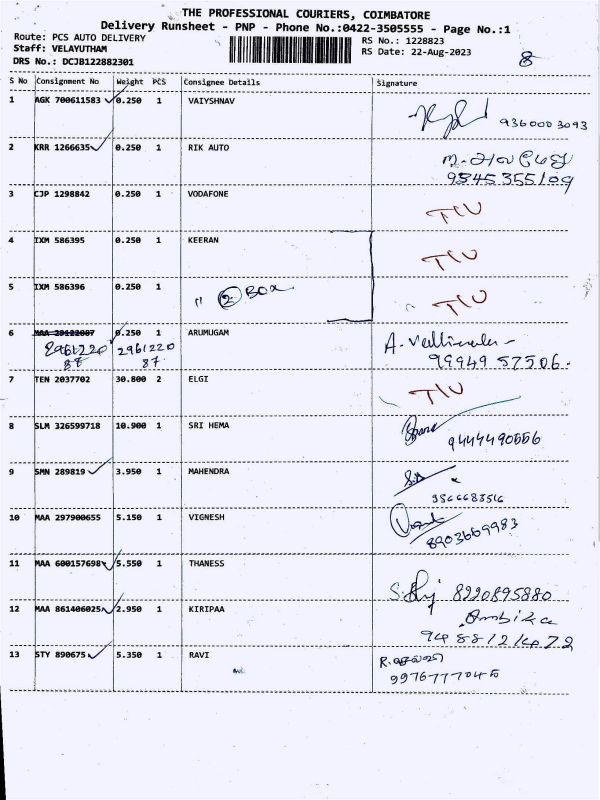 THE PROFESSIONAL COURIERS, COIMBATORE
Delivery Runsheet - PNP - Phone No.:0422-3505555 - Page No.:1
Route: PCS AUTO DELIVERY
RS No.: 1228823
Staff: VELAYUTHAM
RS Date: 22-Aug-2023
DRS No.: DCJB122882301
8
S No Consignment No Weight PCS Consignee Details Signature
1 AGK 700611583 0.250 1 VAIYSHNAV 9360003093
2 KRR 1266635 0.250 1 RIK AUTO
9345355109
3 CJP 1298842 0.250 1 VODAFONE
4 IXM 586395 0.250 1 KEERAN
5 IXM 586396 0.250 1 " 2 BOX
6 MAA 29122087 0.250 1 ARUMUGAM A.
2961220 2961220 99949 57506
87 87
7 TEN 2037702 30.800 2 ELGI
8 SLM 326599718 10.900 1 SRI HEMA
9444490556
9 SMN 289819 3.950 1 MAHENDRA
9566683516
10 MAA 297900655 5.150 1 VIGNESH
8903669983
11 MAA 600157698 5.550 1 THANESS
8220895880
12 MAA 861406025 2.950 1 KIRIPAA Ambika
9488121472
13 STY 890675 5.350 1 RAVI R.
9976777045